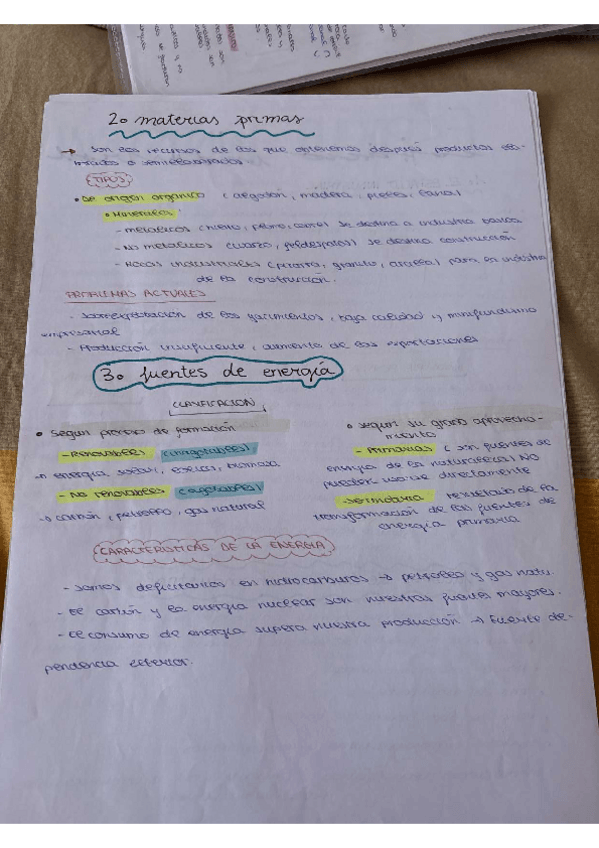 2. materias primas
→ Son los recursos de los que obtenemos después productos ela-
borados o semielaborados.
TIPOS
• De origen orgánico (algodón, madera, pieles, lana)
• Minerales
- metálicos (hierro, plomo, cobre) se destina a industria básica
- No metálicos (cuarzo, feldespatos) se destina construcción
- Rocas industriales (pizarra, granito, arcilla) para en industria
de la construcción.
PROBLEMAS ACTUALES
- Sobreexplotación de los yacimientos, baja calidad y minifundismo
empresarial
- Producción insuficiente, aumento de las exportaciones
3. fuentes de energía
CLASIFICACION
• Según proceso de formación
- Renovables (inagotables)
→ energía solar, eólica, biomasa
- No renovables (agotables)
→ carbón, petróleo, gas natural
• según su grado aprovecha-
miento
- Primarias (son fuentes de
energía de la naturaleza) NO
pueden usarse directamente
resultado de la
transformación de las fuentes de
energía primaria
CARACTERÍSTICAS DE LA ENERGIA
- Somos deficitarios en hidrocarburos → petróleo y gas natu.
- El carbón y la energía nuclear son nuestras fuentes mayores.
- El consumo de energía supera nuestra producción → fuerte de-
pendencia exterior.